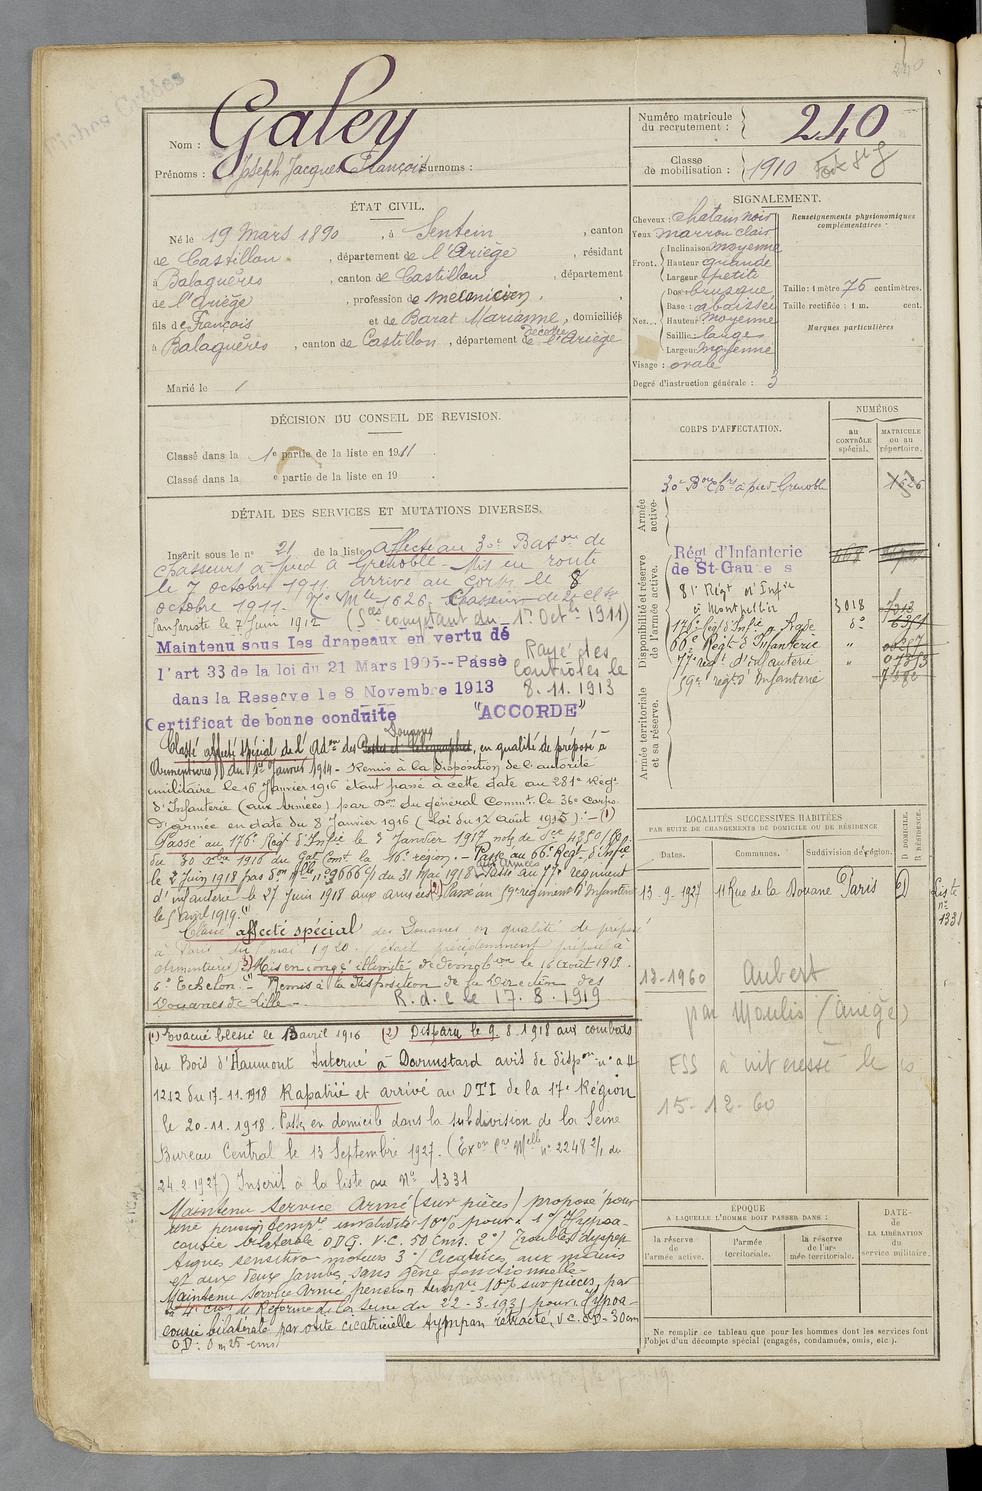 240
Fiches Créées
Nom : Galey
Prénoms : Joseph Jacques François Surnoms :
Numéro matricule du recrutement : 240
Classe de mobilisation : 1910
ÉTAT CIVIL.
Né le 19 Mars 1890, à Sentein, canton
de Castillon, département de l'Ariège, résidant
à Balaguères, canton de Castillon, département
de l'Ariège, profession de mécanicien,
fils de François et de Barat Marianne, domiciliés
décédée
à Balaguères, canton de Castillon, département de l'Ariège
Marié le /
SIGNALEMENT.
Cheveux : chatain noir
Yeux marron clair
Front. Inclinaison moyenne
Hauteur grande
Largeur petite
Nez... Dos : brusque
Base : abaissée
Hauteur moyenne
Saillie : large
Largeur moyenne
Visage : ovale
Degré d'instruction générale : 3
Renseignements physionomiques complémentaires
Taille : 1 mètre 75 centimètres.
Taille rectifiée : 1 m. cent.
Marques particulières
DÉCISION DU CONSEIL DE REVISION.
Classé dans la 1e partie de la liste en 1911.
Classé dans la e partie de la liste en 19 .
DÉTAIL DES SERVICES ET MUTATIONS DIVERSES.
Inscrit sous le n° 21 de la liste affecté au 30e Baton de
chasseurs à pied à Grenoble. Mis en route
le 7 octobre 1911 arrivé au corps le 8
octobre 1911. No Mle 1626. Chasseur de 2e cl.
fanfariste le 7 Juin 1912 (Sces comptant du 1er Octbre 1911)
Maintenu sous les drapeaux en vertu de
l'art 33 de la loi du 21 Mars 1905--Passé
dans la Reserve le 8 Novembre 1913
Rayé des contrôles le 8.11.1913
Certificat de bonne conduite "ACCORDE"
Douanes
Classé affecté spécial de l'Adon des Postes et Télégraphes, en qualité de préposé à
Armentières du 1er Janvier 1914 - Remis à la disposition de l'autorité
militaire le 16 Janvier 1916 étant passé à cette date au 281e Régt
d'Infanterie (aux Armées) par Don du général Commt. le 36e corps
d'armée en date du 8 Janvier 1916 (Loi du 12 Août 1915) - (1)
Passé au 176e Régt d'Infie le 3 Janvier 1917
du 30 Xbre 1916 du Gal Comt la 16e région. - Passé au 66e Régt d'Infie
aux Armées
le 2 Juin 1918 du 31 mai 1918 - Passé au 77e régiment
d'infanterie le 27 Juin 1918 aux armées (2) Passé au 59e régiment d'Infanterie
le 5 avril 1919.
Classé affecté spécial des Douanes en qualité de préposé
à Paris du mai 1920. (était précédemment préposé à
Armentières) (3) Mis en congé illimité de démobon le 16 Août 1919.
6e Echelon. - Remis à la disposition de la Direction des
Douanes de Lille -
R.d.C le 17.8.1919
(1) Evacué blessé le 13 avril 1916 (2) Disparu le 9.8.1918 aux combats
du Bois d'Haumont Interné à Darmstard avis de dispon n° a H
1212 du 17-11.1918 Rapatrié et arrivé au DTI de la 17e Région
le 20-11.1918. Passé en domicile dans la subdivision de la Seine
Bureau Central le 13 Septembre 1927. (Exon Cre Mlle n° 2248 2/1 du
24.2.1927) Inscrit à la liste au No 1331
Maintenu Service Armé (sur pièces) proposé pour
une pension tempre invalidité 10% pour 1°/ Hypoa-
cousie bilatérale ODG. V.C. 50 cms. 2°/ Troubles dyspep
tiques sensitivo moteurs 3°/ Cicatrices aux mains
et aux deux jambes, sans gêne fonctionnelle
Maintenu Service Armé, pension tempre 10% sur pièces, par
la 4e Cion de Réforme de la Seine du 22-3-1931 pour : Hypoa-
cousie bilatérale par otite cicatricielle tympan rétracté, V.C. OD - 30cm
OD : 0m25 cms
CORPS D'AFFECTATION.
NUMÉROS
au CONTRÔLE spécial.
MATRICULE ou au répertoire.
Armée active.
30e Bon Chrs à pied Grenoble 1626
Disponibilité et réserve de l'armée active.
Régt d'Infanterie
de St-Gaudens
81e Régt d'Infie
à Montpellier 3018
176e Régt d'Infie
66e Régt d'Infanterie
77e régt d'Infanterie
59e régt d'Infanterie
Armée territoriale et sa réserve.
LOCALITÉS SUCCESSIVES HABITÉES
PAR SUITE DE CHANGEMENTS DE DOMICILE OU DE RÉSIDENCE
Dates. Communes. Subdivision de région. D DOMICILE. R RÉSIDENCE.
13-9-1927 11 Rue de la Douane Paris D
Liste n° 1331
13-1960 Aubert
par Moulis (Ariège)
15-12-60
ÉPOQUE
A LAQUELLE L'HOMME DOIT PASSER DANS :
la réserve de l'armée active.
l'armée territoriale.
la réserve de l'armée territoriale.
DATE DE LA LIBÉRATION du service militaire.
Ne remplir ce tableau que pour les hommes dont les services font
l'objet d'un décompte spécial (engagés, condamnés, omis, etc.).